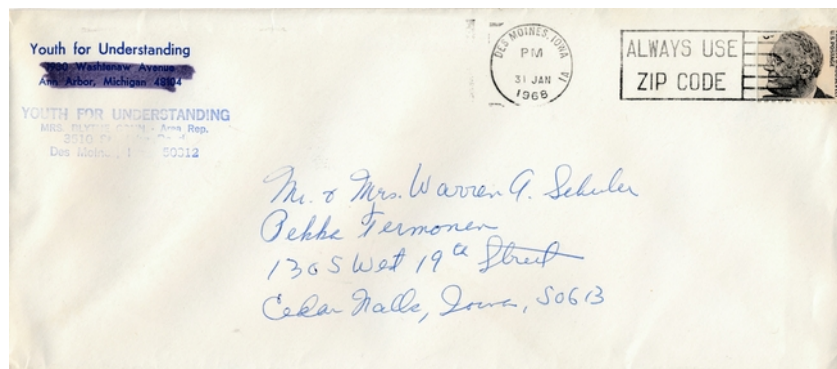 Youth for Understanding
Washtenaw Avenue
Ann Arbor, Michigan 48104
YOUTH FOR UNDERSTANDING
MRS. Area Rep.
3510
Des 50312
DES MOINES, IOWA
PM
31 JAN
1968
IA
ALWAYS USE
ZIP CODE
Mr. & Mrs. Warren A. Schuler
Pekka Termonen
1305 West 19th Street
Cedar Falls, Iowa, 50613